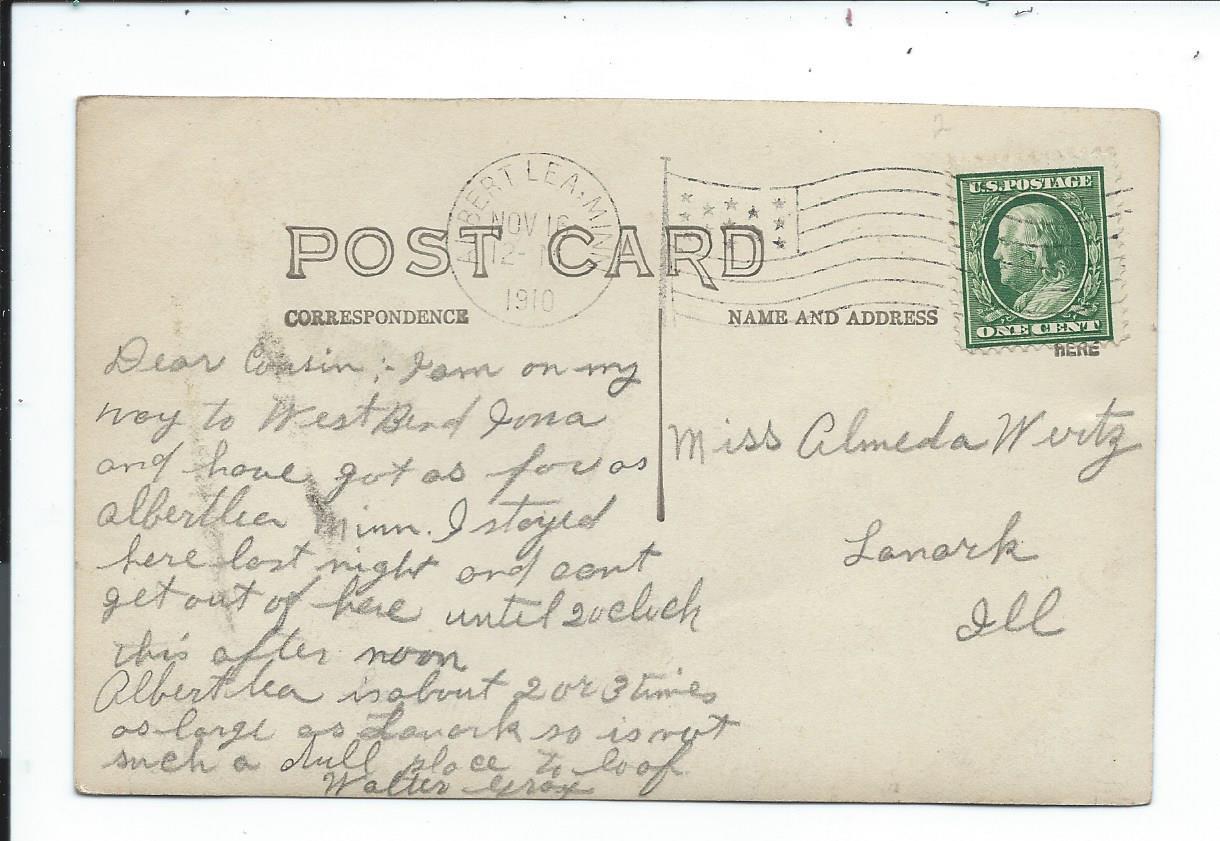 2
U.S. POSTAGE
ALBERT LEA, MINN
NOV 16
12- M
1910
POST CARD
CORRESPONDENCE
NAME AND ADDRESS
ONE CENT
HERE
Dear Cousin:- I am on my
way to West Bend Iowa
and have got as far as
Albertlea Minn. I stayed
here last night and cant
get out of here until 2 oclock
this after noon
Albert lea is about 2 or 3 times
as large as Lanark so is not
such a dull place to loaf
Walter
Miss Almeda Wertz
Lanark
Ill